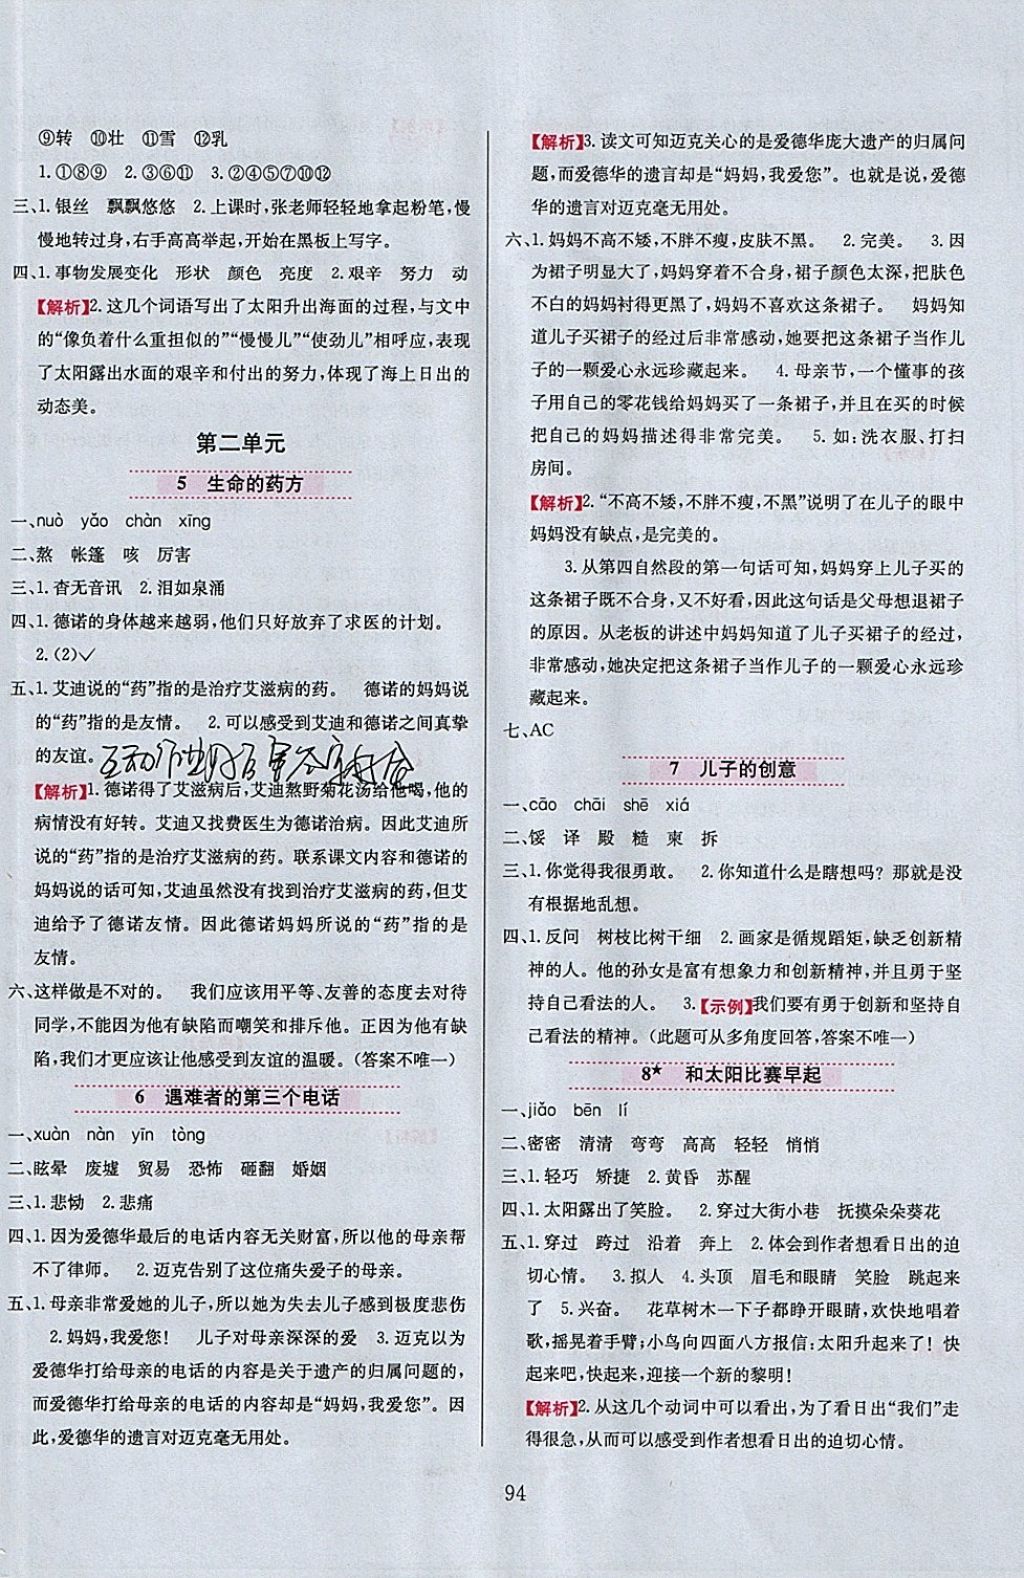 ⑨转　⑩壮　⑪雪　⑫乳
1.①⑧⑨　2.③⑥⑪　3.②④⑤⑦⑩⑫
三、1.银丝　飘飘悠悠　2.上课时,张老师轻轻地拿起粉笔,慢
慢地转过身,右手高高举起,开始在黑板上写字。
四、1.事物发展变化　形状　颜色　亮度　2.艰辛　努力　动
【解析】2.这几个词语写出了太阳升出海面的过程,与文中
的“像负着什么重担似的”“慢慢儿”“使劲儿”相呼应,表现
了太阳露出水面的艰辛和付出的努力,体现了海上日出的
动态美。
第二单元
5　生命的药方
一、nuò　yǎo　chàn　xīng
二、熬　帐篷　咳　厉害
三、1.杳无音讯　2.泪如泉涌
四、1.德诺的身体越来越弱,他们只好放弃了求医的计划。
2.(2)✓
五、1.艾迪说的“药”指的是治疗艾滋病的药。　德诺的妈妈说
的“药”指的是友情。　2.可以感受到艾迪和德诺之间真挚
的友谊。
【解析】1.德诺得了艾滋病后,艾迪熬野菊花汤给他喝,他的
病情没有好转。艾迪又找费医生为德诺治病。因此艾迪所
说的“药”指的是治疗艾滋病的药。联系课文内容和德诺的
妈妈说的话可知,艾迪虽然没有找到治疗艾滋病的药,但艾
迪给予了德诺友情。因此德诺妈妈所说的“药”指的是
友情。
六、这样做是不对的。　我们应该用平等、友善的态度去对待
同学,不能因为他有缺陷而嘲笑和排斥他。正因为他有缺
陷,我们才更应该让他感受到友谊的温暖。(答案不唯一)
6　遇难者的第三个电话
一、xuàn　nàn　yīn　tòng
二、眩晕　废墟　贸易　恐怖　砸翻　婚姻
三、1.悲恸　2.悲痛
四、1.因为爱德华最后的电话内容无关财富,所以他的母亲帮
不了律师。　2.迈克告别了这位痛失爱子的母亲。
五、1.母亲非常爱她的儿子,所以她为失去儿子感到极度悲伤
2.妈妈,我爱您!　儿子对母亲深深的爱　3.迈克以为
爱德华打给母亲的电话的内容是关于遗产的归属问题的,
而爱德华打给母亲的电话的内容却是“妈妈,我爱您”。因
此,爱德华的遗言对迈克毫无用处。
【解析】3.读文可知迈克关心的是爱德华庞大遗产的归属问
题,而爱德华的遗言却是“妈妈,我爱您”。也就是说,爱德
华的遗言对迈克毫无用处。
六、1.妈妈不高不矮,不胖不瘦,皮肤不黑。　2.完美。　3.因
为裙子明显大了,妈妈穿着不合身,裙子颜色太深,把肤色
不白的妈妈衬得更黑了,妈妈不喜欢这条裙子。　妈妈知
道儿子买裙子的经过后非常感动,她要把这条裙子当作儿
子的一颗爱心永远珍藏起来。　4.母亲节,一个懂事的孩
子用自己的零花钱给妈妈买了一条裙子,并且在买的时候
把自己的妈妈描述得非常完美。　5.如:洗衣服、打扫
房间。
【解析】2.“不高不矮,不胖不瘦,不黑”说明了在儿子的眼中
妈妈没有缺点,是完美的。
3.从第四自然段的第一句话可知,妈妈穿上儿子买的
这条裙子既不合身,又不好看,因此这句话是父母想退裙子
的原因。从老板的讲述中妈妈知道了儿子买裙子的经过,
非常感动,她决定把这条裙子当作儿子的一颗爱心永远珍
藏起来。
七、AC
7　儿子的创意
一、cāo　chāi　shē　xiá
二、馁　译　殿　糙　柬　拆
三、1.你觉得我很勇敢。　2.你知道什么是瞎想吗？那就是没
有根据地乱想。
四、1.反问　树枝比树干细　2.画家是循规蹈矩,缺乏创新精
神的人。他的孙女是富有想象力和创新精神,并勇于坚
持自己看法的人。　3.【示例】我们要有勇于创新和坚持自
己看法的精神。(此题可从多角度回答,答案不唯一)
8★　和太阳比赛早起
一、jiǎo　bēn　lí
二、密密　清清　弯弯　高高　轻轻　悄悄
三、1.轻巧　矫捷　2.黄昏　苏醒
四、1.太阳露出了笑脸。　2.穿过大街小巷　抚摸朵朵葵花
五、1.穿过　跨过　沿着　奔上　2.体会到作者想看日出的迫
切心情。　3.拟人　4.头顶　眉毛和眼睛　笑脸　跳起来
了　5.兴奋。　花草树木一下子都睁开眼睛,欢快地唱着
歌,摇晃着手臂;小鸟向四面八方报信;太阳升起来了！快
起来吧,快起来,迎接一个新的黎明!
【解析】2.从这几个动词中可以看出,为了看日出“我们”走
得很急,从而可以感受到作者想看日出的迫切心情。
94